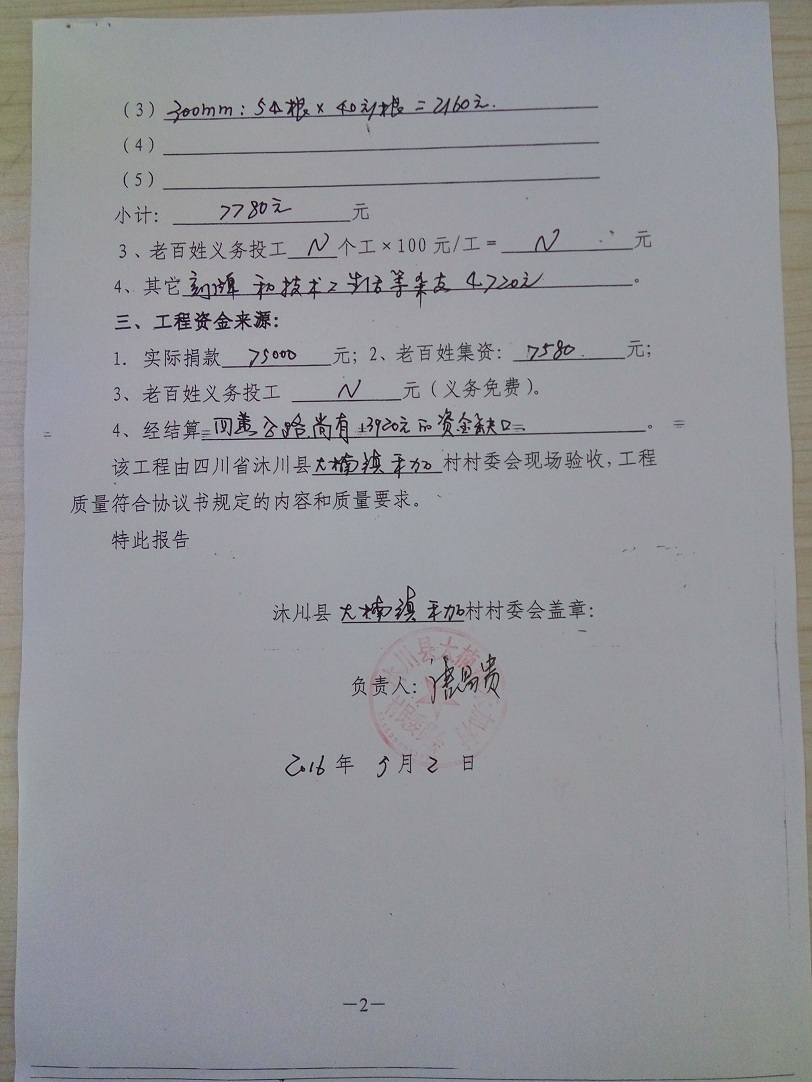 （3）300mm：54根×40元/根=2160元.
（4）
（5）
小计：7780元 元
3、老百姓义务投工 N 个工×100元/工= N 元
4、其它 和技术工生活等杂支 4720元。
三、工程资金来源：
1．实际捐款 75000 元；2、老百姓集资：7580. 元；
3、老百姓义务投工 N 元（义务免费）。
4、经结算 公路尚有13920元的资金缺口。
该工程由四川省沐川县大楠镇禾加村村委会现场验收，工程
质量符合协议书规定的内容和质量要求。
特此报告
沐川县大楠镇禾加村村委会盖章：
负责人：贵
2016年 5月 2 日
—2—